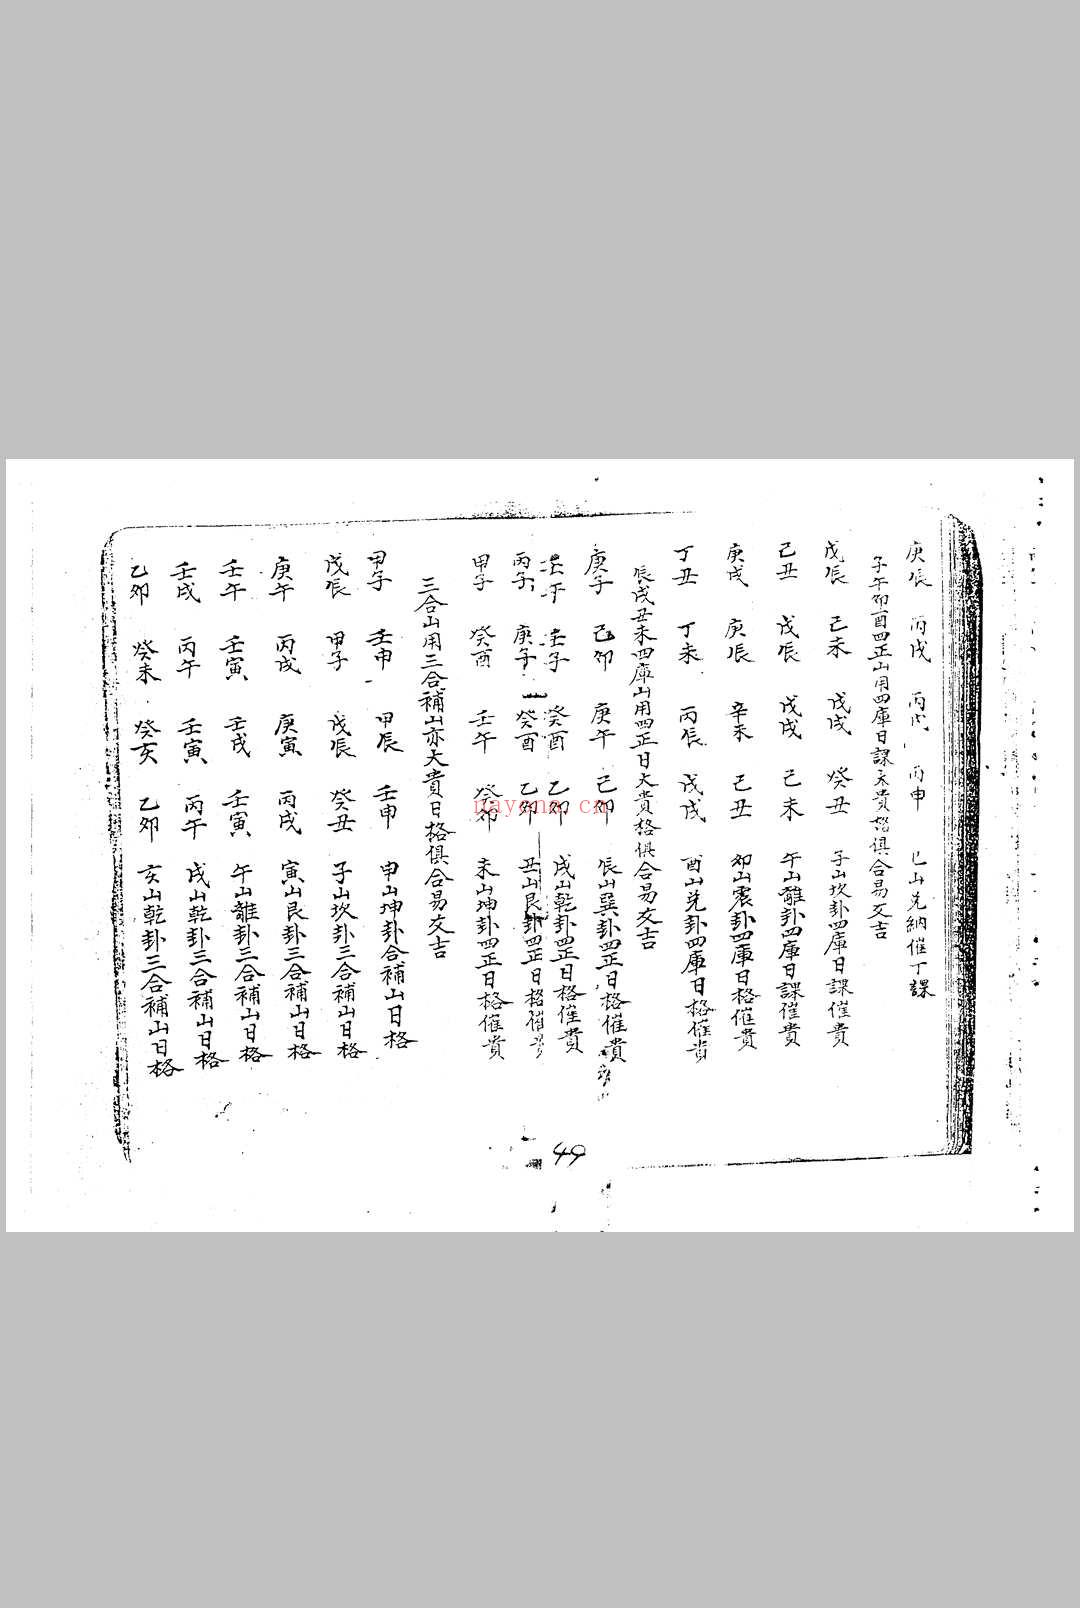 庚辰 丙戌 丙戌 丙申 巳山兑納催丁課
子午卯酉四正山用四庫日課大貴格俱合易爻吉
戊辰 己未 戊戌 癸丑 子山坎卦四庫日課催貴
己丑 戊辰 戊戌 己未 午山離卦四庫日課催貴
庚戌 庚辰 辛未 己丑 卯山震卦四庫日格催貴
丁丑 丁未 丙辰 戊戌 酉山兑卦四庫日格催貴
辰戌丑未四庫山用四正日大貴格俱合易爻吉
庚子 己卯 庚午 己卯 辰山巽卦四正日格催貴
壬午 壬子 癸酉 乙卯 戌山乾卦四正日格催貴
丙子 庚子 癸酉 乙卯 丑山艮卦四正日格催貴
甲子 癸酉 壬午 癸卯 未山坤卦四正日格催貴
三合山用三合補山亦大貴日格俱合易爻吉
甲子 壬申 甲辰 壬申 申山坤卦合補山日格
戊辰 甲子 戊辰 癸丑 子山坎卦三合補山日格
庚午 丙戌 庚寅 丙戌 寅山艮卦三合補山日格
壬午 壬寅 壬戌 壬寅 午山離卦三合補山日格
壬戌 丙午 壬寅 丙午 戌山乾卦三合補山日格
乙卯 癸未 癸亥 乙卯 亥山乾卦三合補山日格
49
nayona.cn